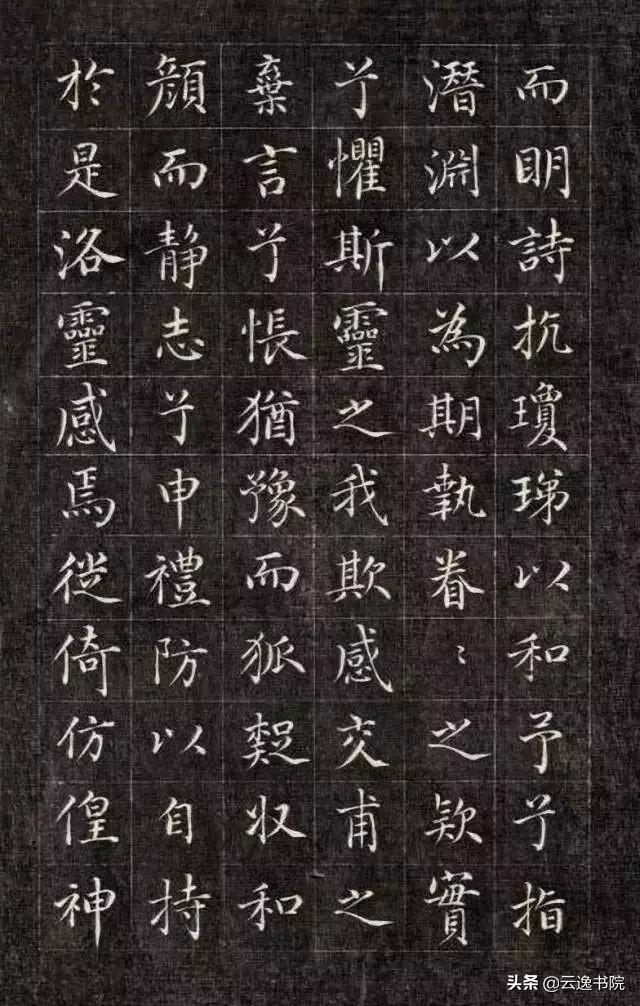 而明詩抗瓊珶以和予兮指
潛淵以為期執眷〻之款實
兮懼斯靈之我欺感交甫之
棄言兮悵猶豫而狐疑収和
顔而静志兮申禮防以自持
於是洛靈感焉徙倚仿偟神
头条@云逸书院